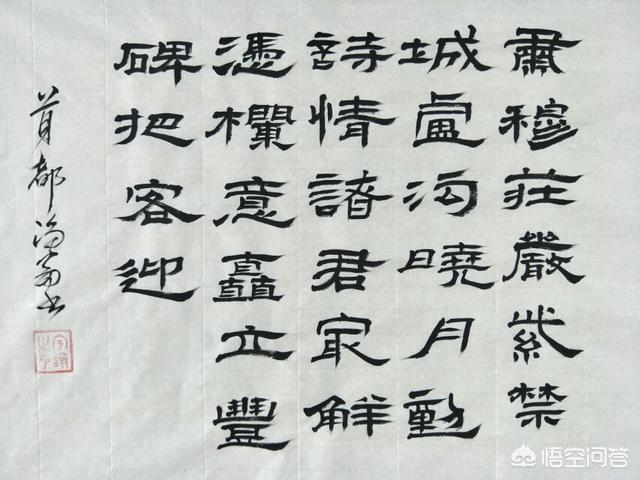 肅穆莊嚴紫禁
城盧沟曉月動
詩情諸君最解
憑欄意矗立豐
碑把客迎
首都
悟空问答